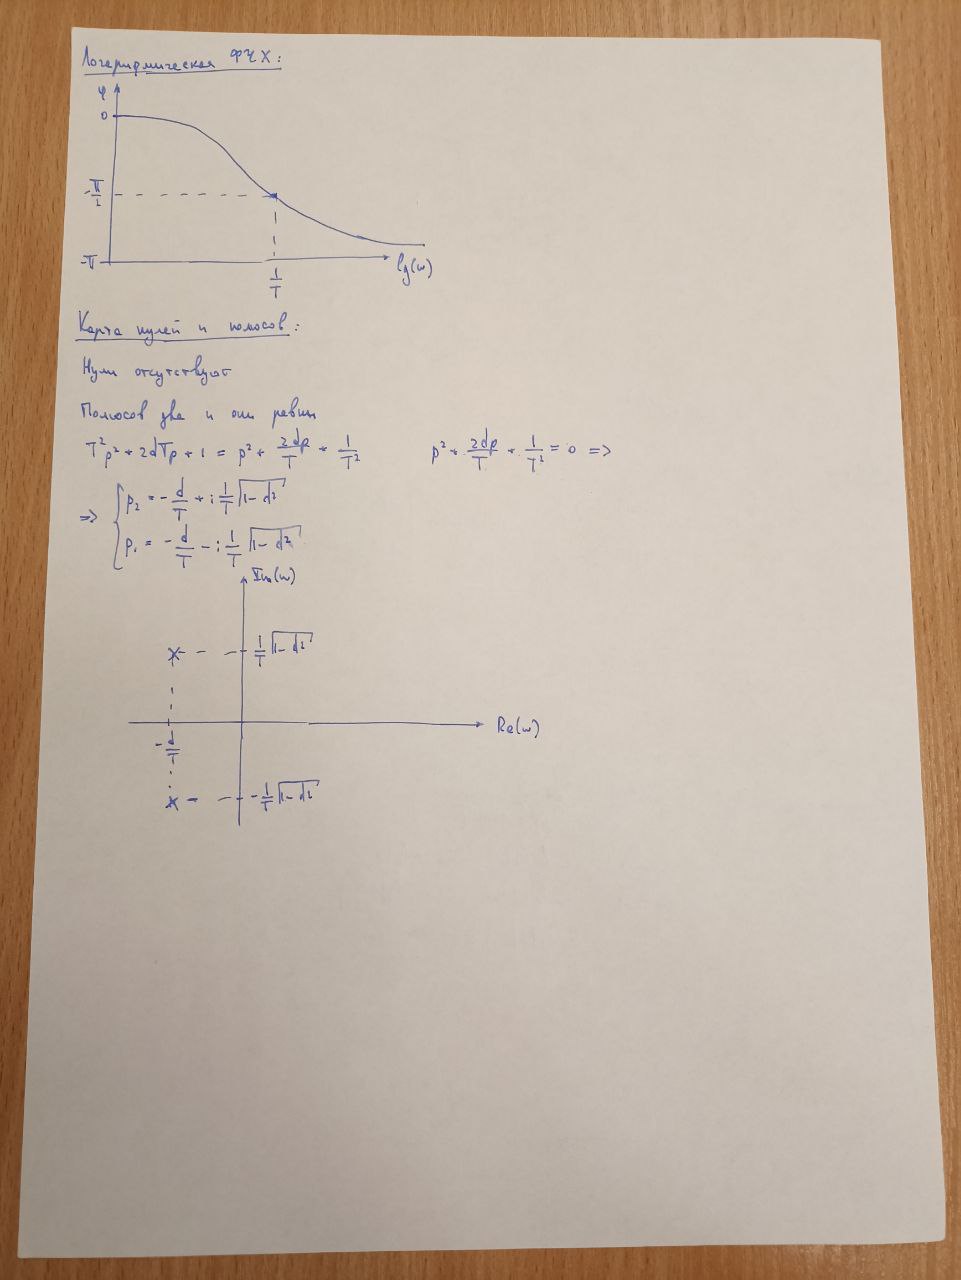 Логарифмическая ФЧХ:
φ
0
-π/2
-π
1/T
lg(w)
Карта нулей и полюсов:
Нули отсутствуют
Полюсов два и они равны
T²p² + 2dTp + 1 = p² + 2dp/T + 1/T²   p² + 2dp/T + 1/T² = 0 =>
=> { p₂ = -d/T + i 1/T √(1-d²)
p₁ = -d/T - i 1/T √(1-d²)
Im(w)
1/T √(1-d²)
Re(w)
-d/T
-1/T √(1-d²)